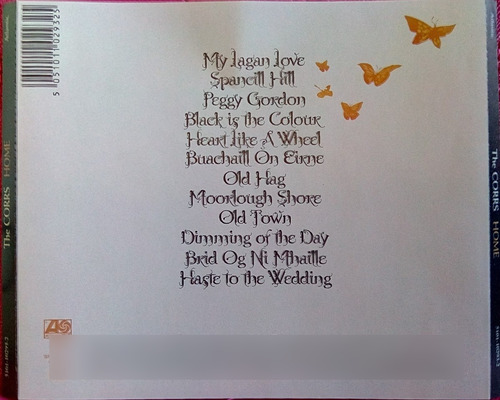 5 051011 029325
My Lagan Love
Spancill Hill
Peggy Gordon
Black is the Colour
Heart Like A Wheel
Buachaill On Eirne
Old Hag
Moorlough Shore
Old Town
Dimming of the Day
Brid Og Ni Mhaille
Haste to the Wedding
The CORRS HOME
The CORRS HOME